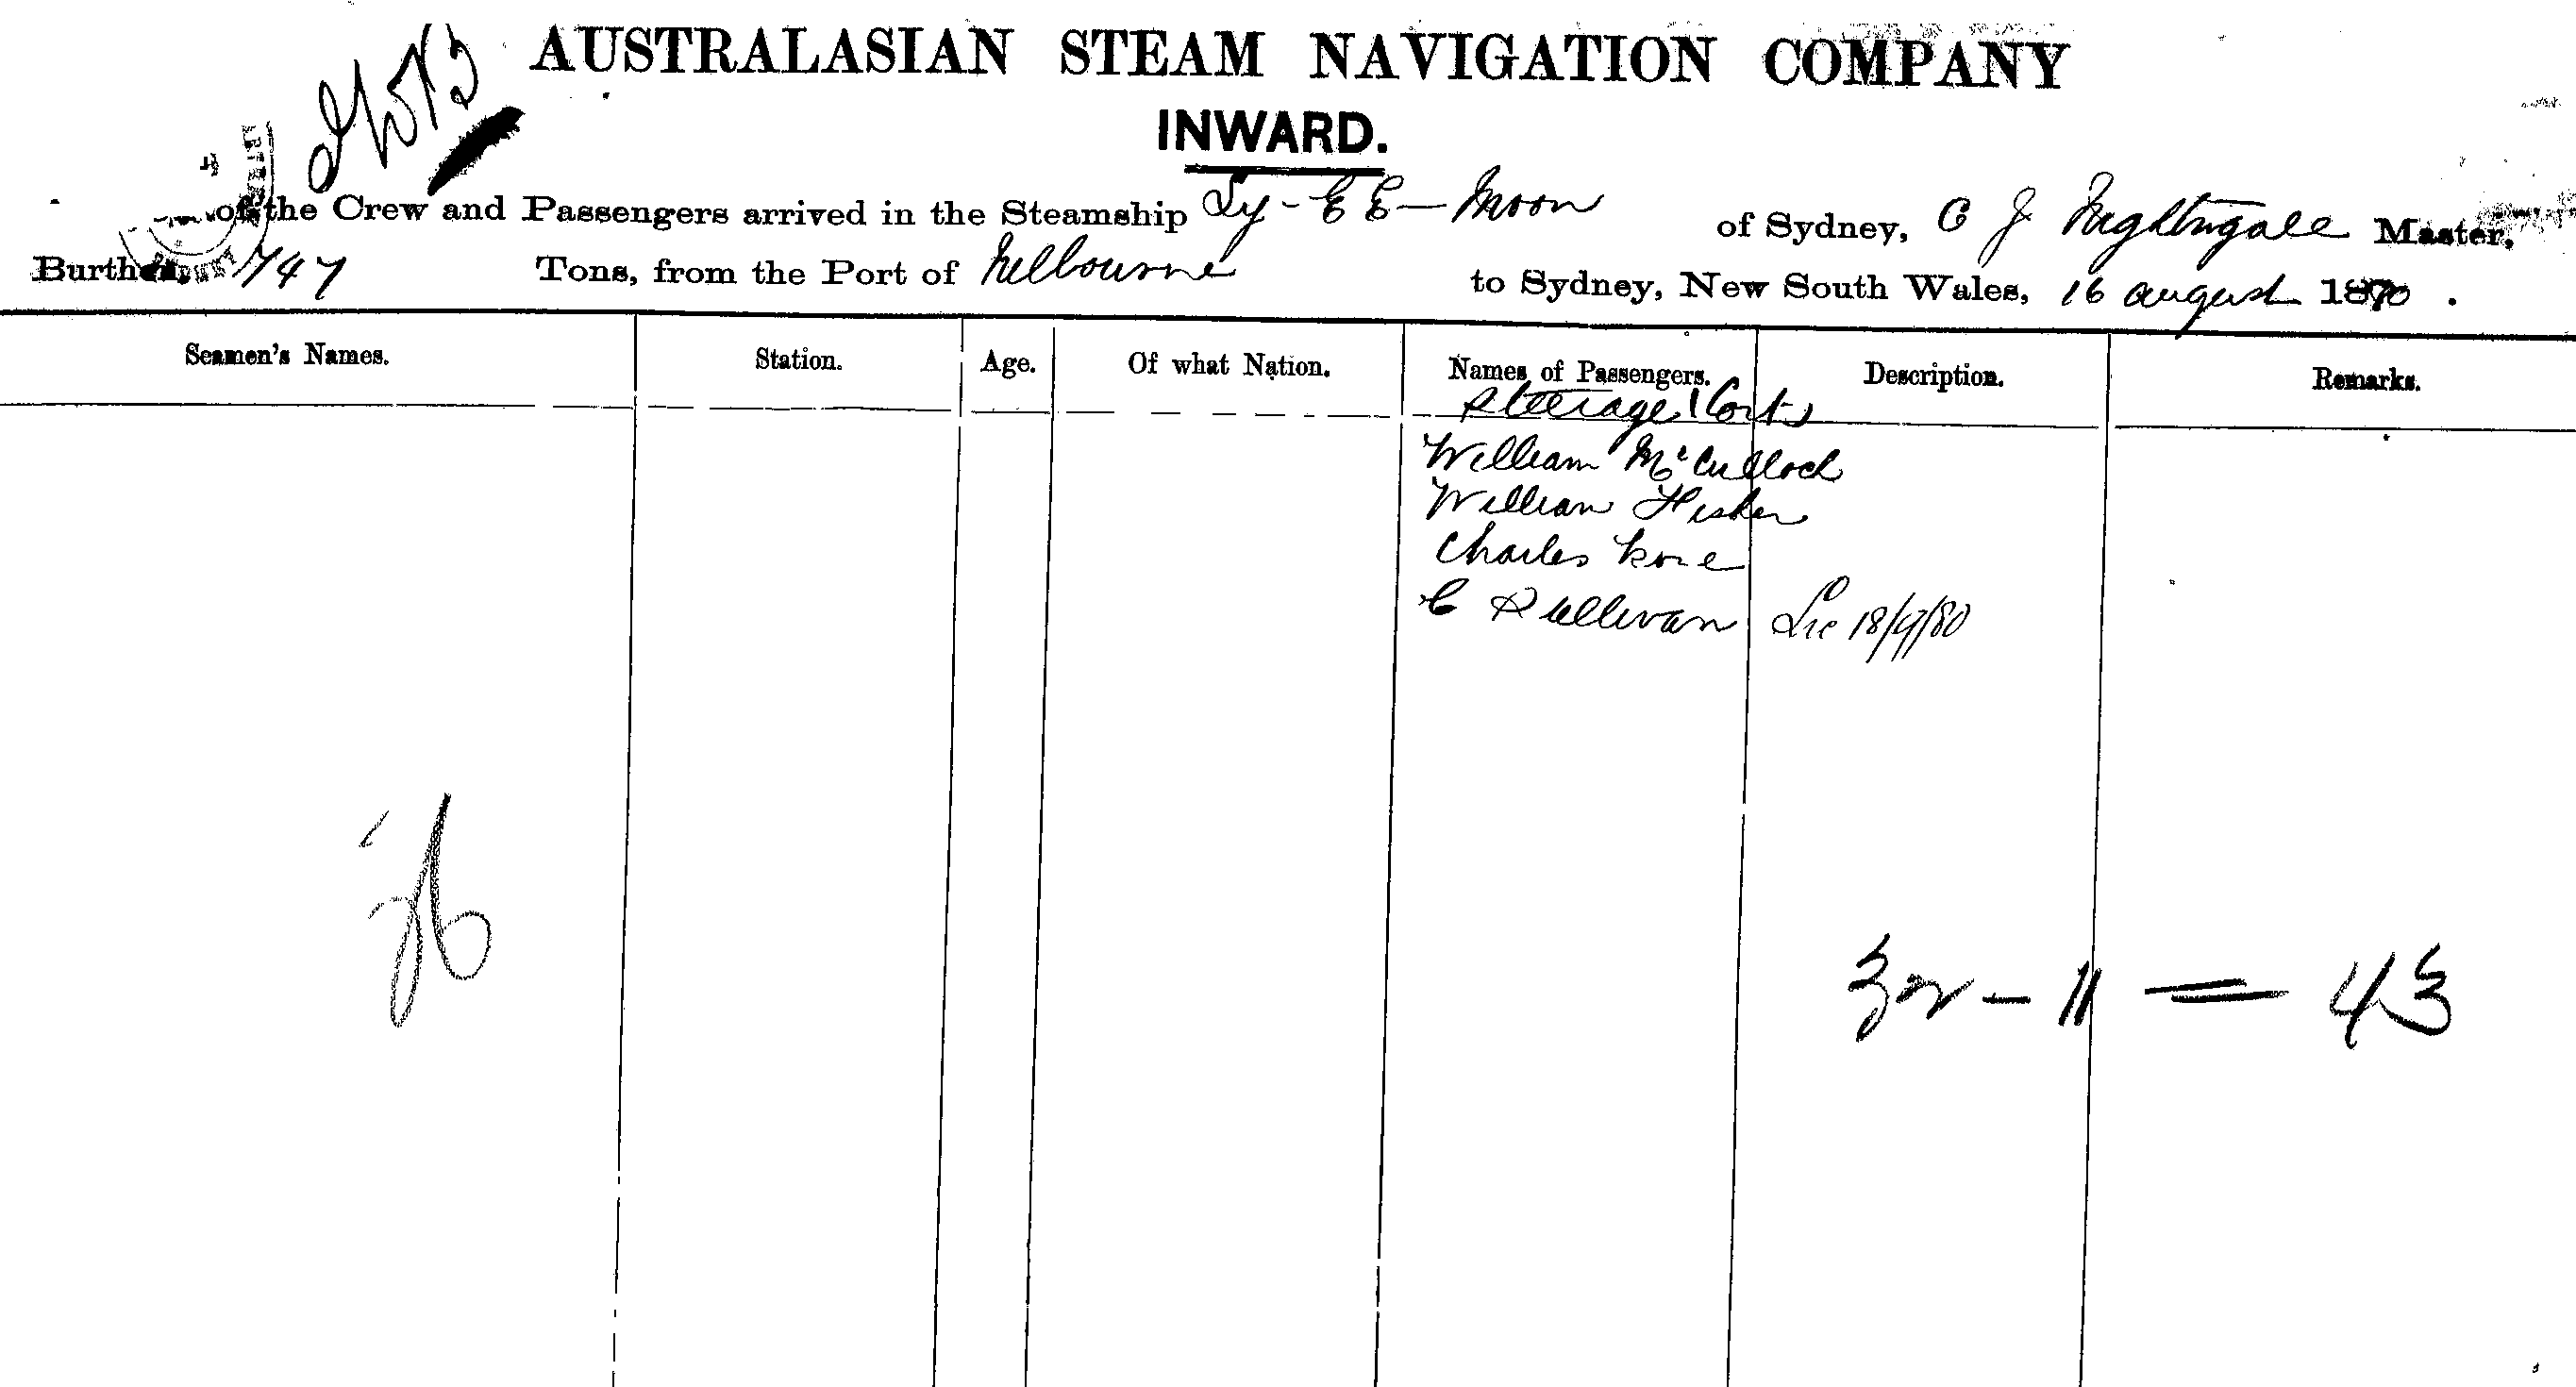 AUSTRALASIAN STEAM NAVIGATION COMPANY
INWARD.
of the Crew and Passengers arrived in the Steamship Ly-EE-Moon of Sydney, C J Nightingale Master,
Burthen, 747 Tons, from the Port of Melbourne to Sydney, New South Wales, 16 august 1880.
Seamen's Names. Station. Age. Of what Nation. Names of Passengers. Description. Remarks.
Steerage (Cont)
William McCulloch
William Fisher
Charles
C Sullivan 18/9/80
32 - 11 = 43